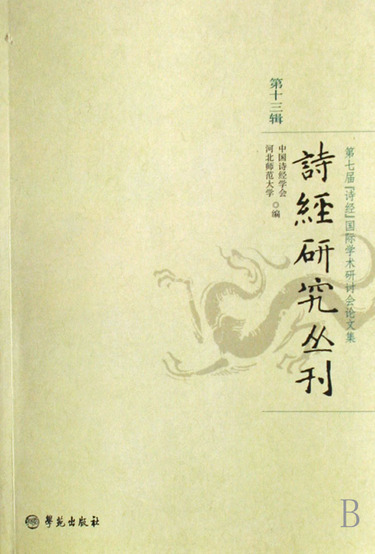 第七届『诗经』国际学术研讨会论文集
詩經研究丛刊
第十三辑
中国诗经学会
河北师范大学
◎编
學苑出版社
B